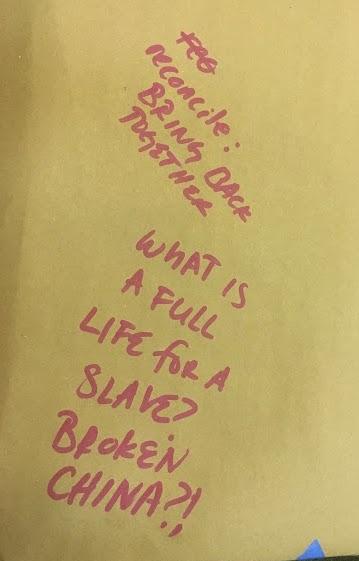 reconcile:
BRING BACK
TOGETHER
WHAT IS
A FULL
LIFE FOR A
SLAVE?
BROKEN
CHINA?!